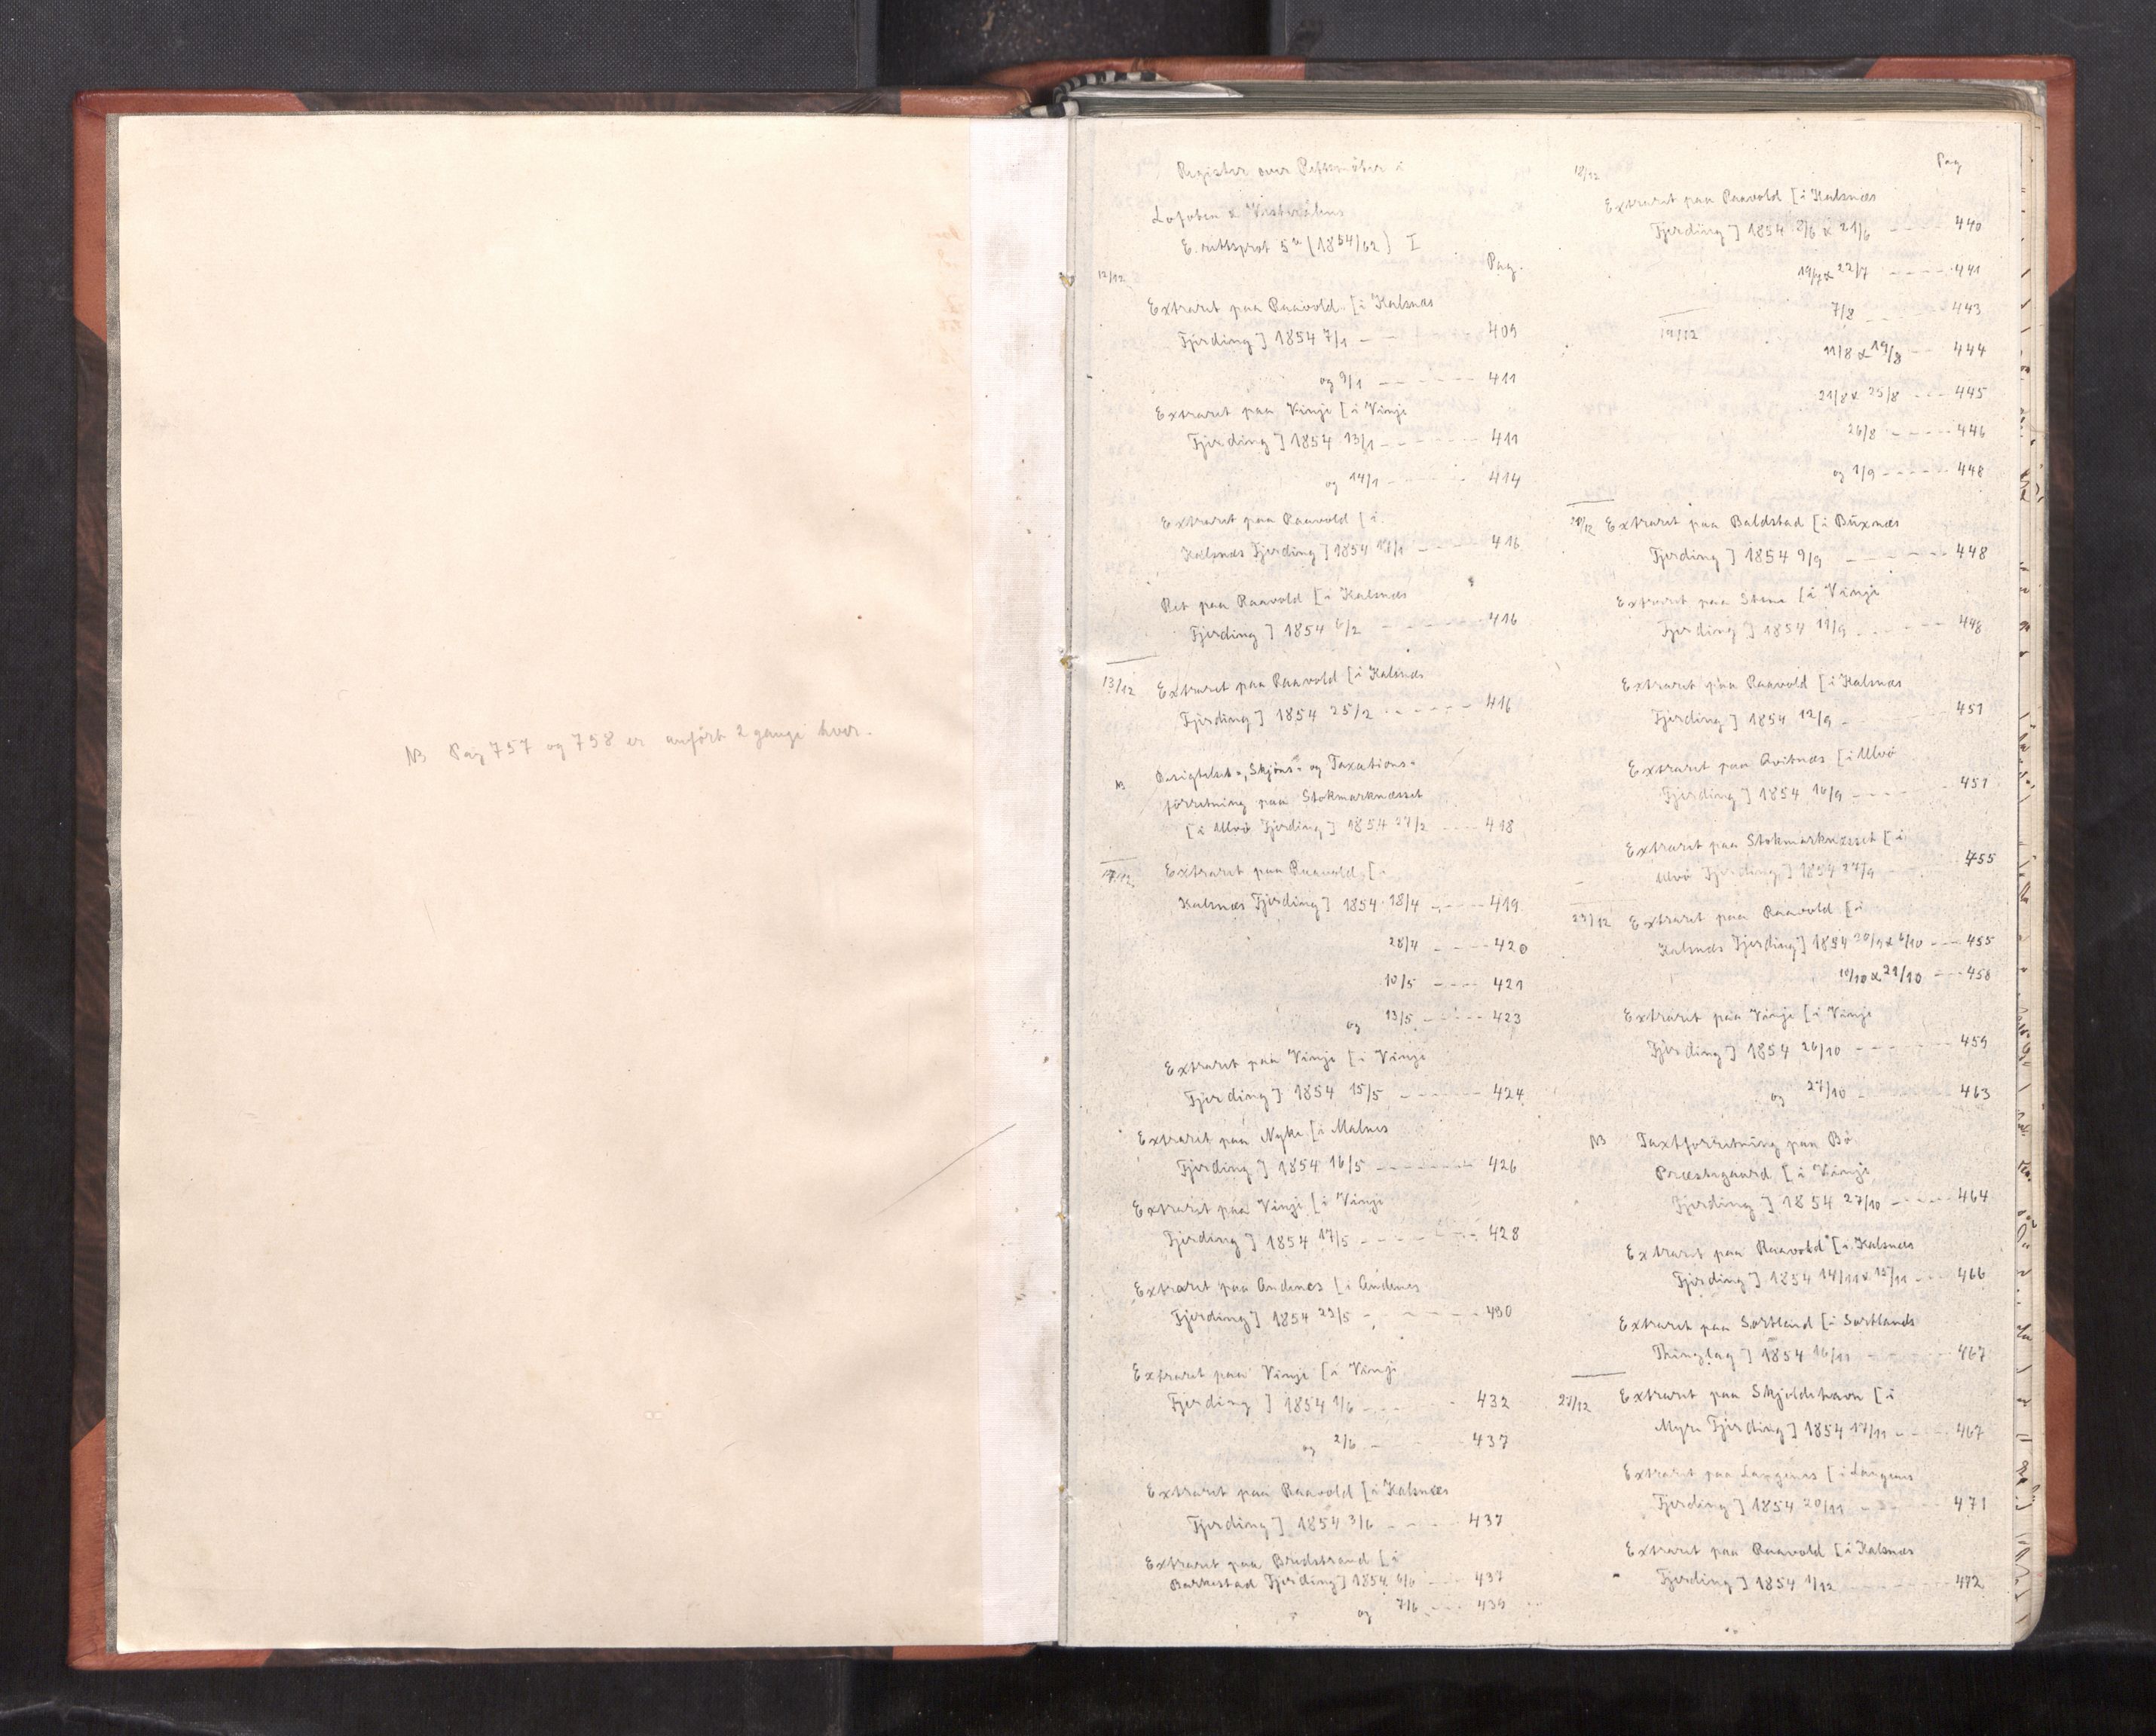 NB Pag 757 og 758 er anført 2 gange hver.
Register over Rettsmöter i
Lofoten & Vesterålens
E. rettsprot 5a (1854/62) I
Pag.
12/12
Extraret paa Raavold [i Kalsnæs
Fjerding] 1854 7/1 - - 409
og 9/1 - - - - - - 411
Extraret paa Vinje [i Vinje
Fjerding] 1854 13/1 - - - - - 411
og 14/1 - - - - - 414
Extraret paa Raavold [i
Kalsnæs Fjerding] 1854 17/1 - - - - 416
Ret paa Raavold [i Kalsnæs
Fjerding] 1854 6/2 - - - - - 416
13/12 Extraret paa Raavold [i Kalsnæs
Fjerding] 1854 25/2 - - - - - - 416
NB Besigtelses-, Skjöns- og Taxations-
förretning paa Stokmarknæsset
[i Ulvö Fjerding] 1854 27/2 - - - - 418
Extraret paa Raavold [i
Kalsnæs Fjerding] 1854 18/4 - - - - 419
28/4 - - - - 420
10/5 - - - - 421
og 13/5 - - - - 423
Extraret paa Vinje [i Vinje
Fjerding] 1854 15/5 - - - - - 424
Extraret paa Nyke [i Malnes
Fjerding] 1854 16/5 - - - - - - 426
Extraret paa Vinje [i Vinje
Fjerding] 1854 17/5 - - - - - - 428
Extraret paa Andenes [i Andenes
Fjerding] 1854 29/5 - - - - - 430
Extraret paa Vinje [i Vinje
Fjerding] 1854 1/6 - - - - 432
og 2/6 - - 437
Extraret paa Raavold [i Kalsnæs
Fjerding] 1854 3/6 - - - - 437
Extraret paa Bredstrand [i
Barkestad Fjerding] 1854 6/6 - - - 437
og 7/6 - - - 439
Pag
18/12
Extraret paa Raavold [i Kalsnæs
Fjerding] 1854 8/6 & 21/6 - - - - 440
19/7 & 22/7 - - - - 441
7/8 - - 443
19/12
11/8 & 19/8 - - 444
21/8 & 25/8 - - - 445
26/8 - - - - - 446
og 1/9 - - - - - 448
Extraret paa Baldstad [i Buxnæs
Fjerding] 1854 9/9 - - - - - 448
Extraret paa Stene [i Vinje
Fjerding] 1854 11/9 - - - - - 448
Extraret paa Raavold [i Kalsnæs
Fjerding] 1854 12/9 - 451
Extraret paa Qvitnæs [i Ulvö
Fjerding] 1854 16/9 - - - - 451
Extraret paa Stokmarknæsset [i
Ulvö Fjerding] 1854 27/9 455
Extraret paa Raavold [i
Kalsnæs Fjerding] 1854 6/10 - - - 455
& 21/10 - - - 458
Extraret paa Vinje [i Vinje
Fjerding] 1854 26/10 - - - - - 459
og 27/10 - - 463
NB Taxtforretning paa Bö
Præstegaard [i Vinje
Fjerding] 1854 27/10 - - - - 464
Extraret paa Raavold [i Kalsnæs
Fjerding] 1854 14/11 & 15/11 - - - 466
Extraret paa Sortland [i Sortlands
Thinglag] 1854 16/11 - - - - 467
Extraret paa Skjoldehavn [i
Myre Fjerding] 1854 17/11 - - - - 467
Extraret paa Langenes [i Langenes
Fjerding] 1854 20/11 - - - - 471
Extraret paa Raavold [i Kalsnæs
Fjerding] 1854 1/12 - - - - - - 472